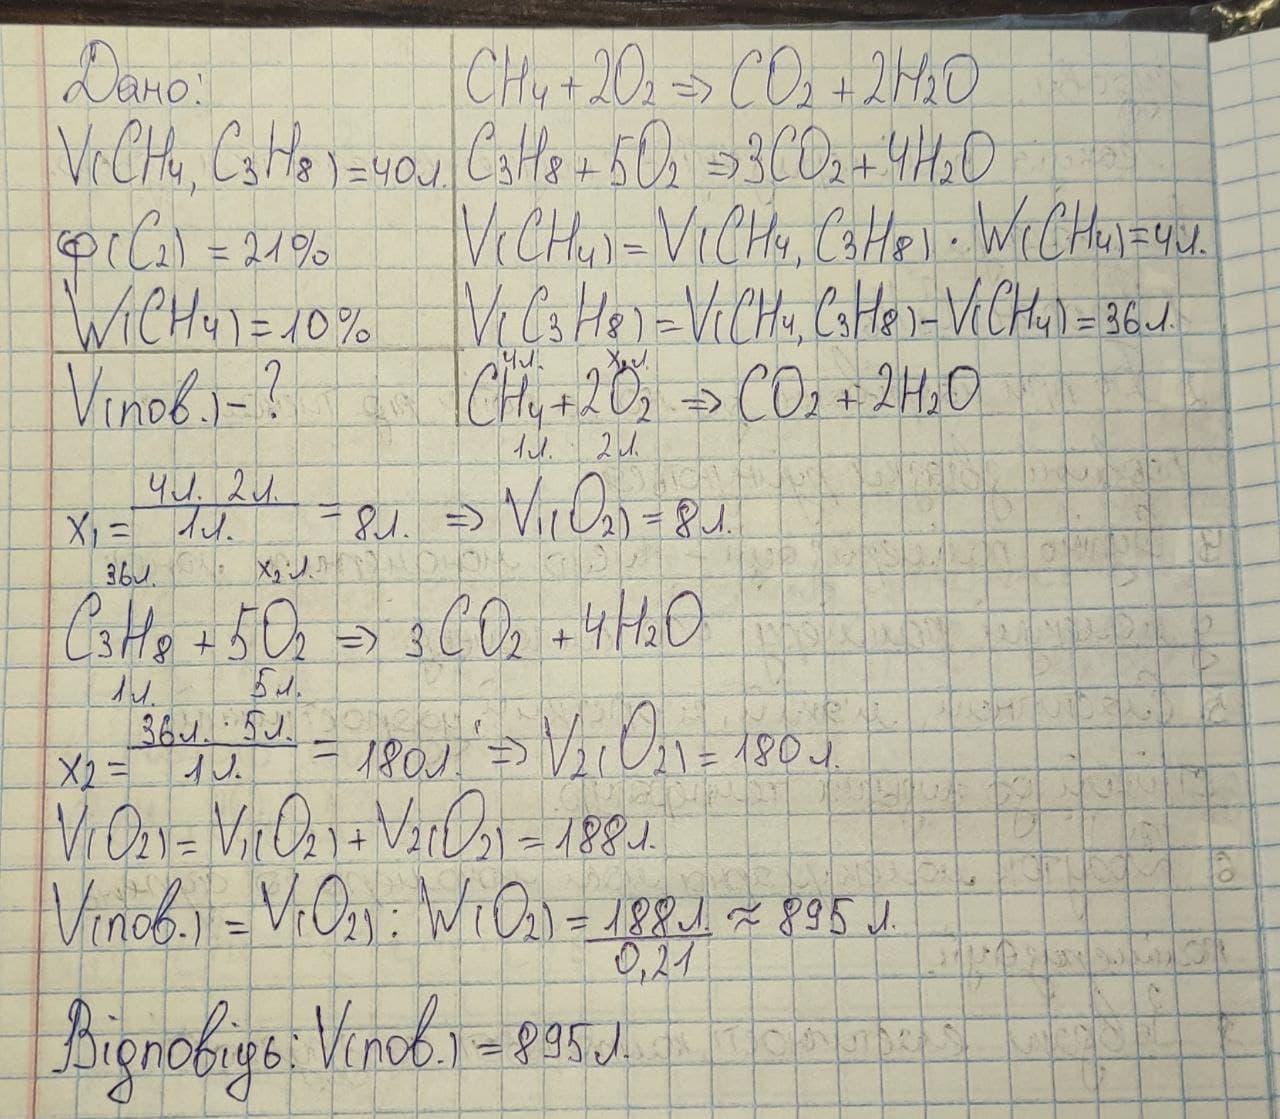 Дано:
V(CH4, C3H8) = 40л.
φ(C2) = 21%
W(CH4) = 10%
V(пов.) - ?
CH4 + 2O2 => CO2 + 2H2O
C3H8 + 5O2 => 3CO2 + 4H2O
V(CH4) = V(CH4, C3H8) · W(CH4) = 4л.
V(C3H8) = V(CH4, C3H8) - V(CH4) = 36л.
4л. x1л.
CH4 + 2O2 => CO2 + 2H2O
1л. 2л.
x1 = 4л. 2л. / 1л. = 8л. => V1(O2) = 8л.
36л. x2л.
C3H8 + 5O2 => 3CO2 + 4H2O
1л. 5л.
x2 = 36л. · 5л. / 1л. = 180л. => V2(O2) = 180л.
V(O2) = V1(O2) + V2(O2) = 188л.
V(пов.) = V(O2) : W(O2) = 188л. / 0,21 ≈ 895 л.
Відповідь: V(пов.) = 895л.